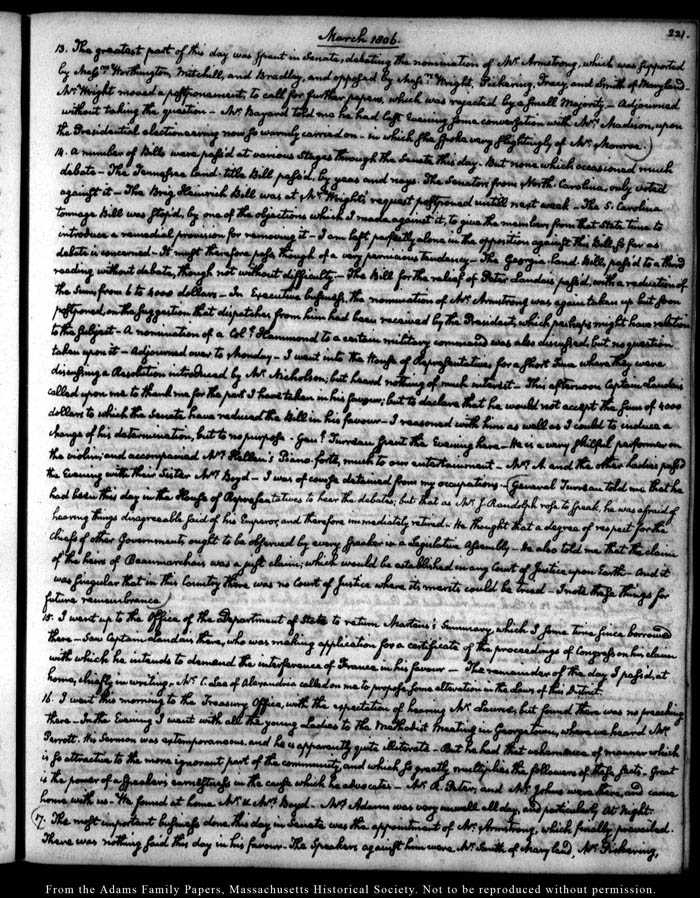 March 1806.
221.
13. The greatest part of this day was spent in Senate, debating the nomination of Mr. Armstrong, which was supported
by Messrs. Worthington, Mitchell, and Bradley, and opposed by Messrs. Wright, Pickering, Tracy, and Smith of Maryland—
Mr. Wright moved a postponement, to call for further papers, which was rejected by a small Majority.— Adjourned
without taking the question— Mr. Bayard told me he had last Evening some conversation with Mrs. Madison, upon
the Presidential electioneering now so warmly carried on— in which she spoke very slightingly of Mr. Monroe.)
14. A number of Bills were pass'd at various Stages through the Senate this day. But none which occasioned much
debate— The Tennessee land-title Bill pass'd, by yeas and nays. The Senators from North-Carolina, only voted
against it— The Brig Heinrich Bill was at Mr. Wright's request postponed untill next week— The S. Carolina
tonnage Bill was stop'd, by one of the objections which I made against it, to give the members from that State time to
introduce a remedial provision for removing it— I am left perfectly alone in the opposition against this Bill so far as
debate is concerned— It must therefore pass though of a very pernicious tendency— The Georgia land Bill, pass'd to a third
reading without debate, though not without difficulty— The Bill for the relief of Peter Landais pass'd, with a reduction of
the sum, from 6 to 4000 dollars— In Executive business, the nomination of Mr. Armstrong was again taken up but soon
postponed, on the suggestion that dispatches from him had been received by the President, which perhaps might have relation
to the subject— A nomination of a Coll. Hammond to a certain military command was also discussed, but no question
taken upon it— Adjourned over to Monday— I went into the House of Representatives for a short time where they were
discussing a Resolution introduced by Mr. Nicholson; but heard nothing of much interest— This afternoon Captain Landais
called upon me to thank me for the part I have taken in his favour; but to declare that he would not accept the sum of 4000
dollars to which the Senate have reduced the Bill in his favour— I reasoned with him as well as I could to induce a
change of his determination, but to no purpose— Genl. Turreau spent the Evening here— He is a very skilful performer on
the violin; and accompanied Mrs. Hellen's Piano-forte, much to our entertainment— Mrs. A. and the other ladies pass'd
the Evening with their Sister Mrs. Boyd— I was of course detained from my occupations— (General Turreau told me that he
had been this day in the House of Representatives to hear the debates; but that as Mr. J. Randolph rose to speak, he was afraid of
hearing things disagreeable said of his Emperor, and therefore immediately retired— He thought that a degree of respect for the
chiefs of other Governments ought to be observed by every speaker in a Legislative Assembly— He also told me that the claim
of the heirs of Beaumarchais was a just claim; which would be established in any Court of Justice upon Earth— And it
was singular that in this Country there was no Court of Justice where its merits could be tried— I note these things for
future remembrance)
15. I went up to the Office of the Department of State to return Martens's Summary, which I some time since borrowed
there— Saw Captain Landais there, who was making application for a certificate of the proceedings of Congress on his claim
with which he intends to demand the interference of France in his favour— The remainder of the day I pass'd, at
home, chiefly in writing— Mr. C. Lee of Alexandria called on me to propose some alteration in the Laws of this District.
16. I went this morning to the Treasury Office, with the expectation of hearing Mr. Laurie, but found there was no preaching
there— In the Evening I went with all the young Ladies to the Methodist Meeting in Georgetown, where we heard Mr.
Parrott. His Sermon was extemporaneous, and he is apparently quite illiterate— But he had that vehemence of manner which
is so attractive to the more ignorant part of the community, and which so greatly multiplies the followers of these sects— Great
is the power of a speaker's earnestness in the cause which he advocates— Mr. R. Peter, and Mr. Johns were there, and came
home with us— We found at home Mr. & Mrs. Boyd— Mrs. Adams was very unwell all day, and particularly at Night.
(17. The most important business done this day in Senate was the appointment of Mr. Armstrong, which finally prevailed.
There was nothing said this day in his favour— The speakers against him were Mr. Smith of Maryland, Mr. Pickering,
From the Adams Family Papers, Massachusetts Historical Society. Not to be reproduced without permission.